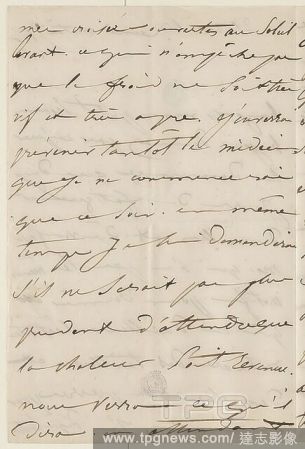 mes croisées ouvertes au Soleil
levant. ce qui n'empêche pas
que le froid ne Soit très
vif et très apre. J'enverrai
prévenir tantôt le médecin
que je ne commencerai
que ce Soir. en même
temps Je lui Demanderai
S'il ne Serait pas plus
prudent d'attendre que
la chaleur Soit revenue.
nous verrons ce qu'il
Dira en attendant
TPG
www.tpgnews.com/達志影像